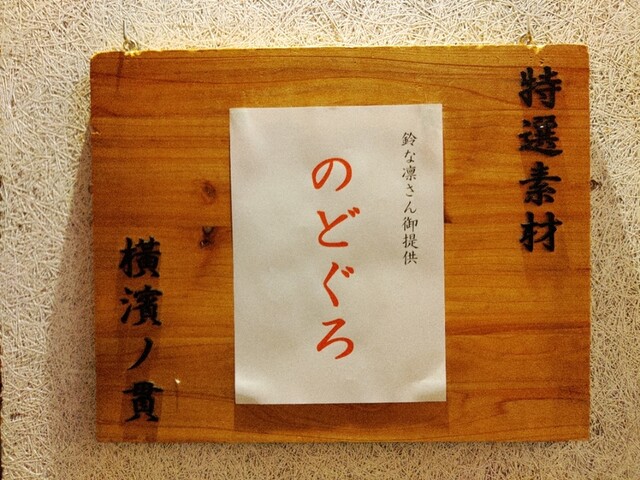 特選素材
鈴な凛さん御提供
のどぐろ
横濱ノ貫